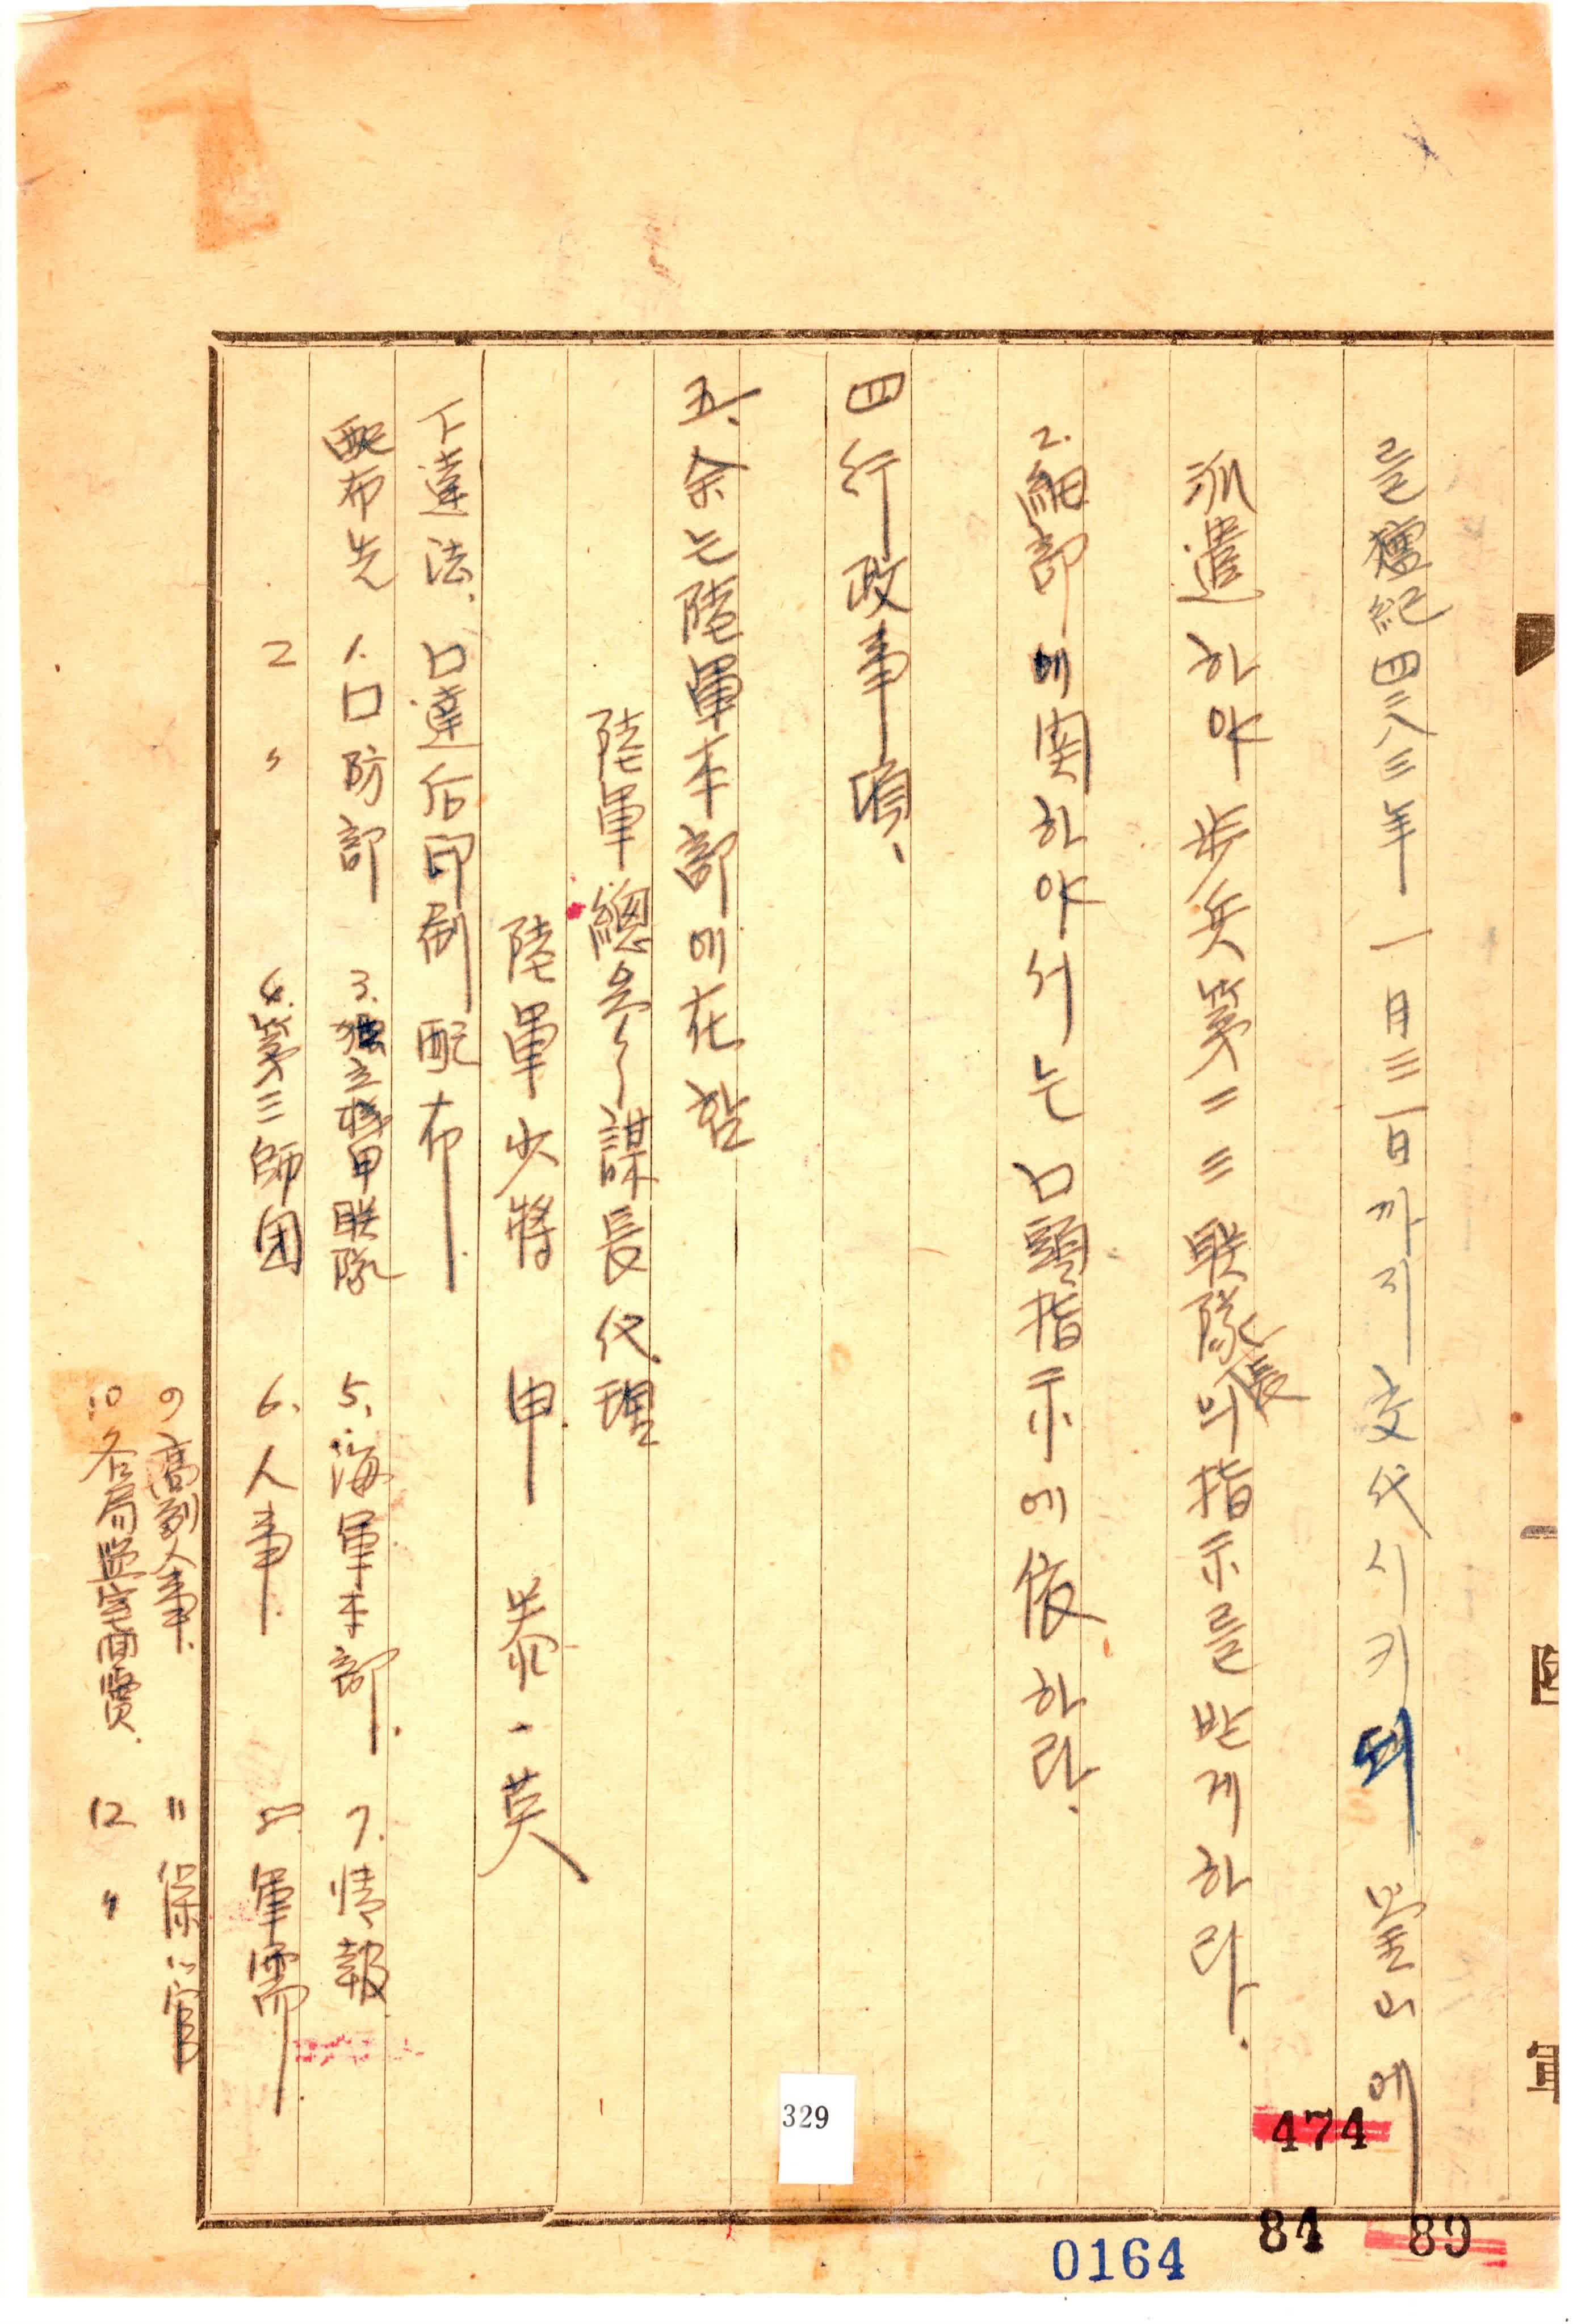 를 檀紀四二八三年 一月三一日까지 交代시키되 釜山에
派遣하야 步兵第二三联隊長의 指示를 받게하라.
2. 細部에 関하야서는 口頭指示에 依하라.
四 行政事項、
五、余는 陸軍本部에 在함
陸軍總参謀長代理
陸軍少將 申泰英
下達法、口達后印刷配布.
配布先 1. 口防部 3. 独立機甲联隊 5. 海軍本部. 7. 情報
2 〃 4. 第三師団 6. 人事. 8. 軍需.
9 高副人事. 11 保管
10 各局監室回覧. 12 〃
陸
軍
329
474
84
89
0164